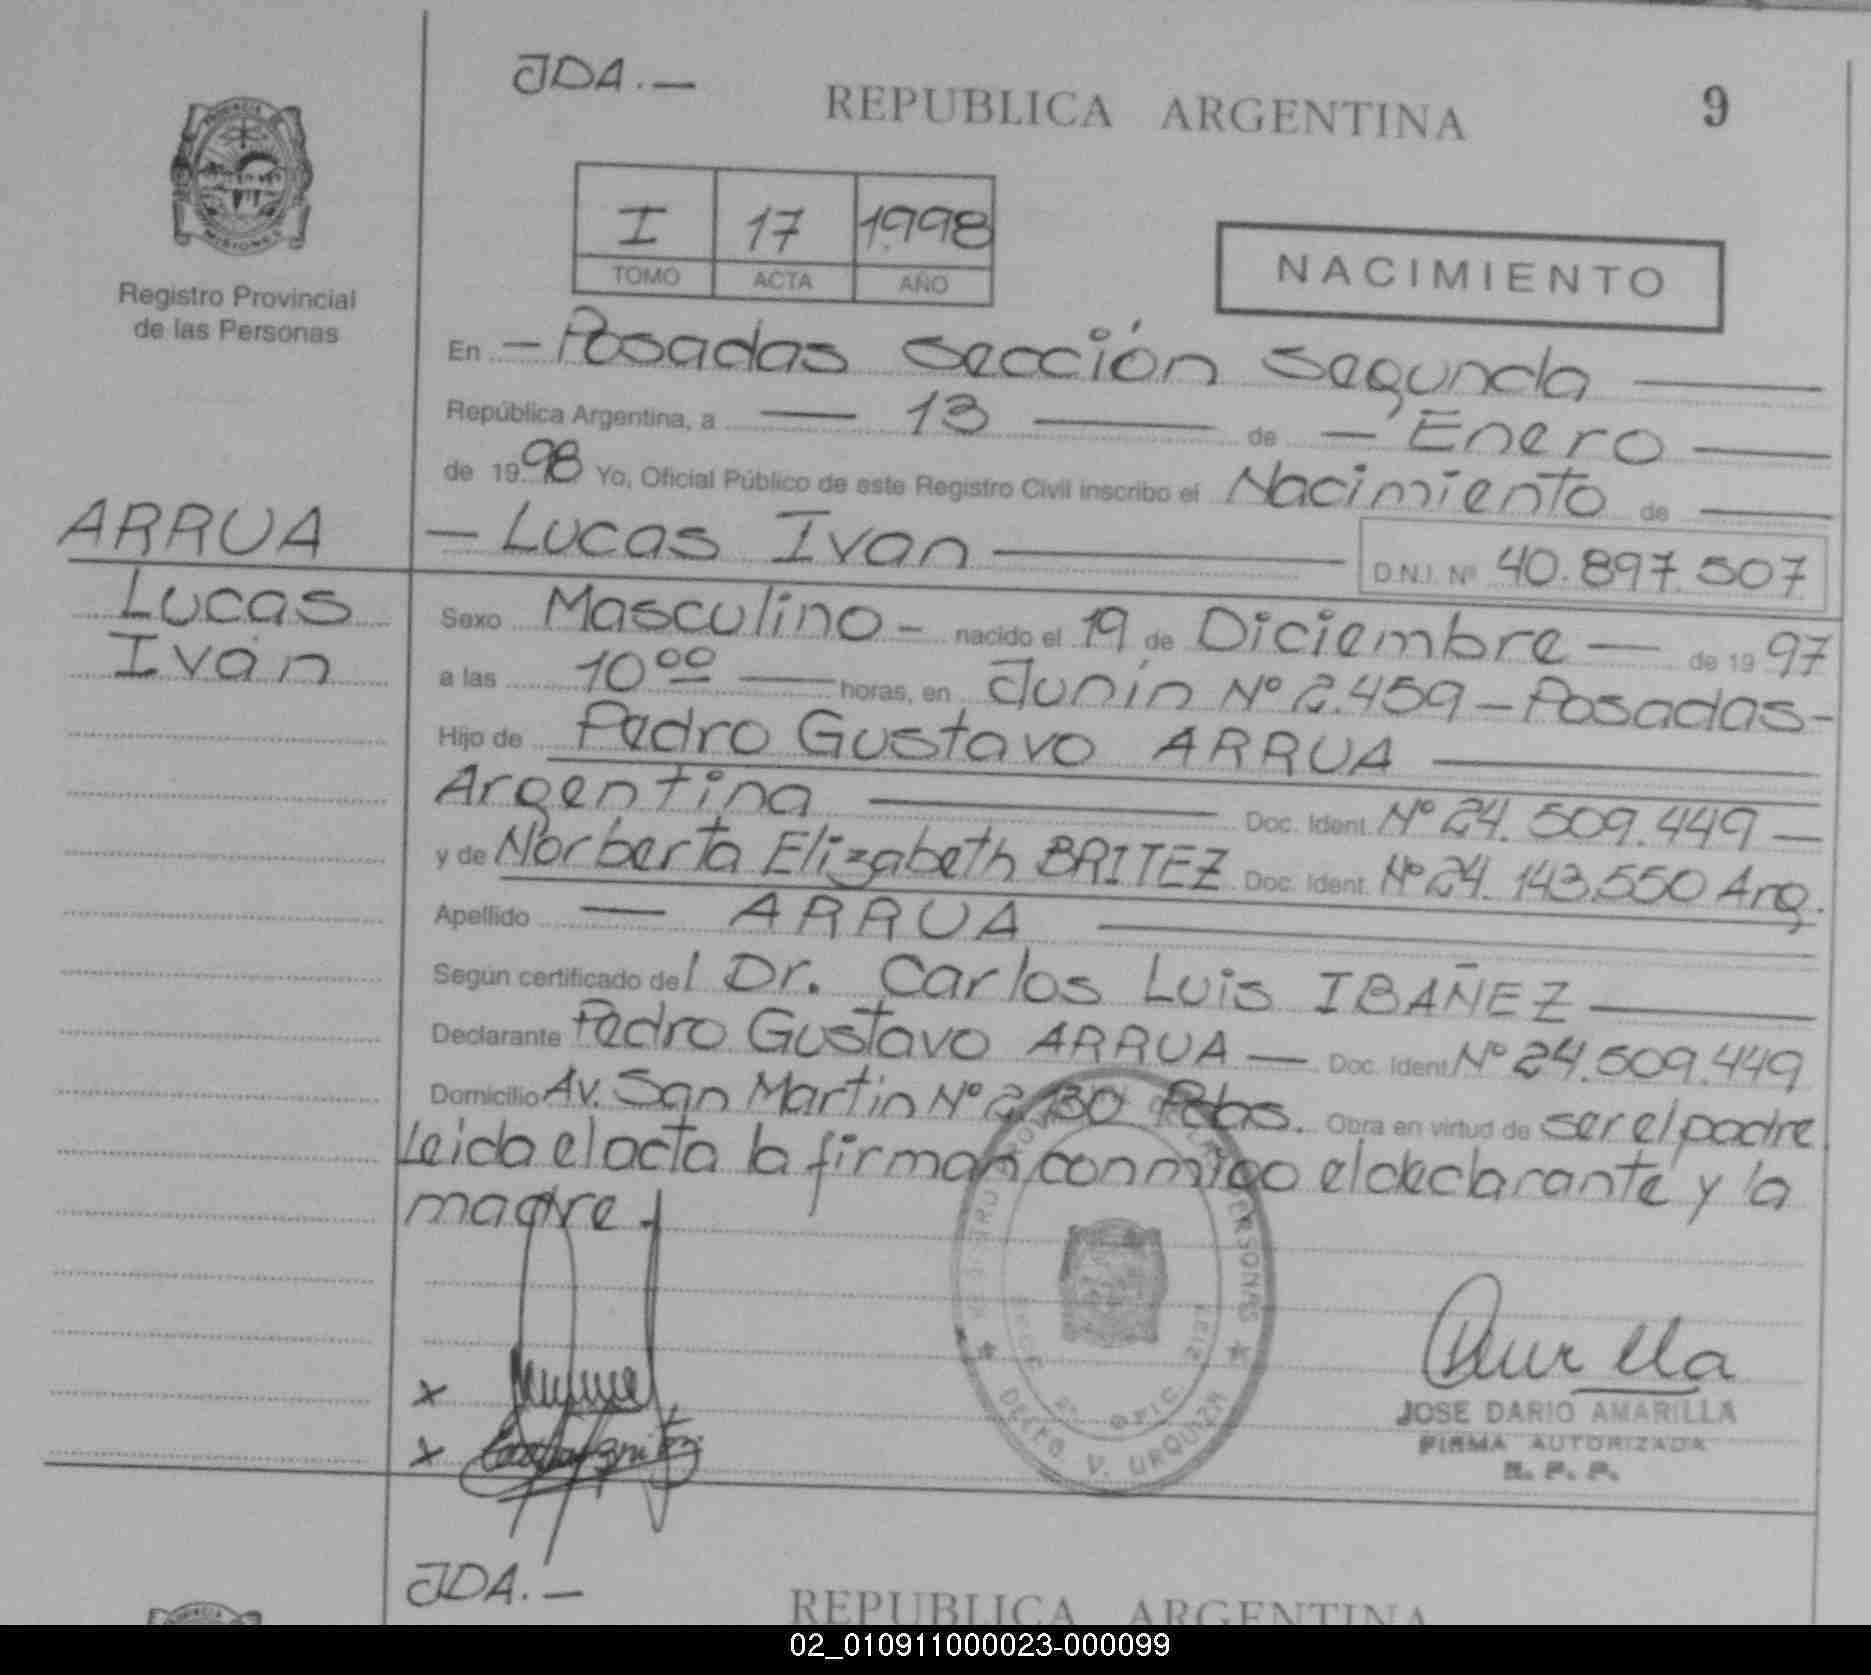 JDA.—
REPUBLICA ARGENTINA
9
PROVINCIA
MISIONES
Registro Provincial
de las Personas
I 17 1998
TOMO ACTA AÑO
NACIMIENTO
En — Posadas sección segunda —
República Argentina, a — 13 — de — Enero —
de 1998 Yo, Oficial Público de este Registro Civil inscribo el Nacimiento de —
— Lucas Ivan — D.N.I. Nº 40.897.507
ARRUA
Lucas
Iván
Sexo Masculino — nacido el 19 de Diciembre — de 1997
a las 10⁰⁰ — horas, en Junín Nº 2.459 — Posadas —
Hijo de Pedro Gustavo ARRUA —
Argentina — Doc. Ident. Nº 24.509.449 —
y de Norberta Elizabeth BRITEZ Doc. Ident. Nº 24.143.550 Arg.
Apellido — ARRUA —
Según certificado del Dr. Carlos Luis IBAÑEZ —
Declarante Pedro Gustavo ARRUA — Doc. Ident. Nº 24.509.449
Domicilio Av. San Martin Nº 2.130 Pdas. Obra en virtud de ser el padre.
Leida el acta la firman conmigo el declarante y la
madre.
PERSONAS
DELEG. V. URQUIZA
x
x
JOSE DARIO AMARILLA
FIRMA AUTORIZADA
R. P. P.
JDA.—
REPUBLICA ARGENTINA
02_010911000023-000099